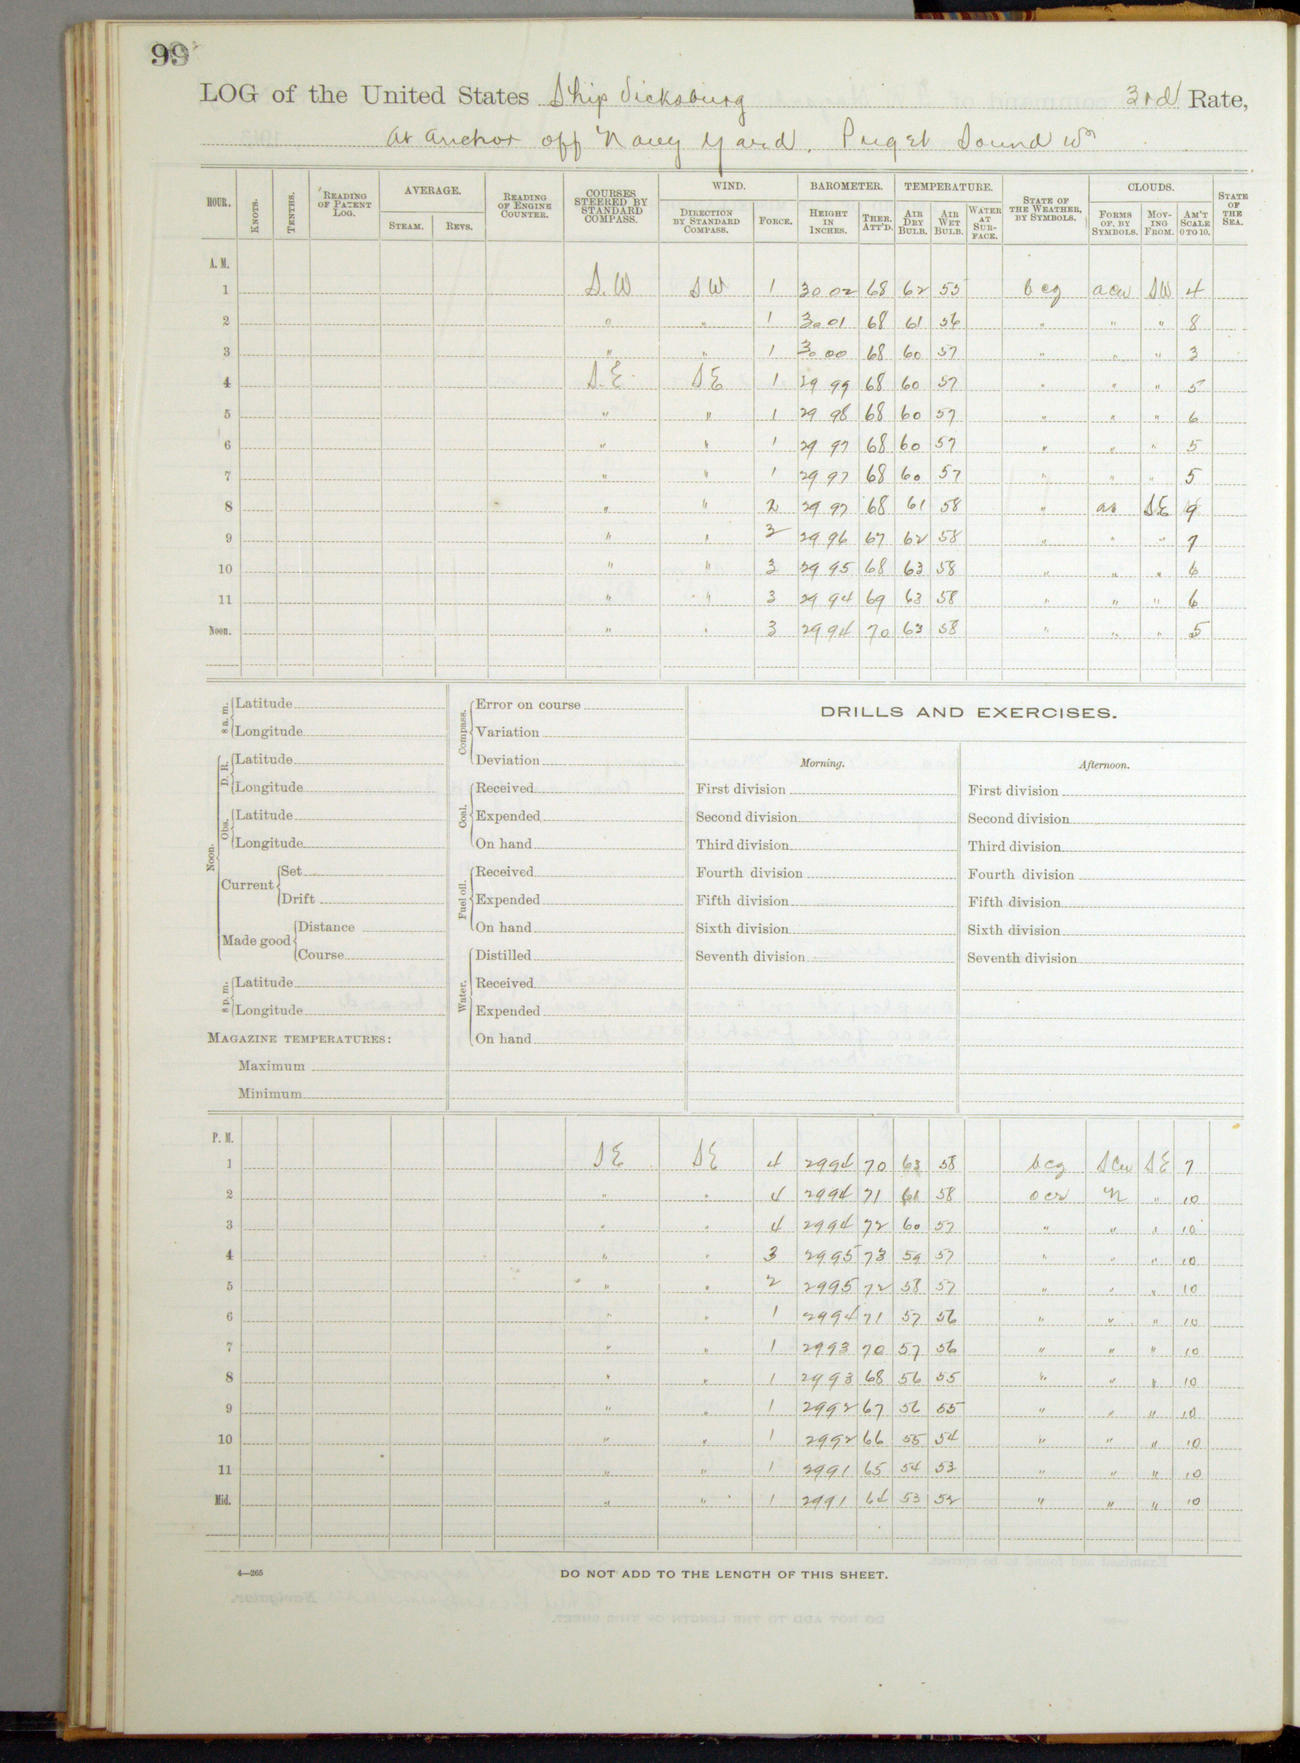 99
LOG of the United States Ship Vicksburg 3rd Rate,
At anchor off Navy Yard. Puget Sound Wn
HOUR. KNOTS. TENTHS. READING OF PATENT LOG. AVERAGE. STEAM. REVS. READING OF ENGINE COUNTER. COURSES STEERED BY STANDARD COMPASS. WIND. DIRECTION BY STANDARD COMPASS. FORCE. BAROMETER. HEIGHT IN INCHES. THER. ATT'D. TEMPERATURE. AIR DRY BULB. AIR WET BULB. WATER AT SURFACE. STATE OF THE WEATHER, BY SYMBOLS. CLOUDS. FORMS OF, BY SYMBOLS. MOVING FROM. AM'T SCALE 0 TO 10. STATE OF THE SEA.
A. M.
1 S.W SW 1 30 02 68 62 55 bcg acu SW 4
2 " " 1 30 01 68 61 56 " " " 8
3 " " 1 30 00 68 60 57 " " " 3
4 S.E. SE 1 29 99 68 60 57 " " " 5
5 " " 1 29 98 68 60 57 " " " 6
6 " " 1 29 97 68 60 57 " " " 5
7 " " 1 29 97 68 60 57 " " " 5
8 " " 2 29 97 68 61 58 " as SE 9
9 " " 3 29 96 67 62 58 " " " 7
10 " " 3 29 95 68 63 58 " " " 6
11 " " 3 29 94 69 63 58 " " " 6
Noon. " " 3 29 94 70 63 58 " " " 5
8 a. m. Latitude
Longitude
Noon. D. R. Latitude
Longitude
Obs. Latitude
Longitude
Current Set
Drift
Made good Distance
Course
8 p. m. Latitude
Longitude
MAGAZINE TEMPERATURES:
Maximum
Minimum
Compass. Error on course
Variation
Deviation
Coal. Received
Expended
On hand
Fuel oil. Received
Expended
On hand
Water. Distilled
Received
Expended
On hand
DRILLS AND EXERCISES.
Morning.
First division
Second division
Third division
Fourth division
Fifth division
Sixth division
Seventh division
Afternoon.
First division
Second division
Third division
Fourth division
Fifth division
Sixth division
Seventh division
P. M.
1 SE SE 4 29 94 70 63 58 bcg Scu SE 7
2 " " 4 29 94 71 61 58 ocr N " 10
3 " " 4 29 94 72 60 57 " " " 10
4 " " 3 29 95 73 59 57 " " " 10
5 " " 2 29 95 72 58 57 " " " 10
6 " " 1 29 94 71 57 56 " " " 10
7 " " 1 29 93 70 57 56 " " " 10
8 " " 1 29 93 68 56 55 " " " 10
9 " " 1 29 92 67 56 55 " " " 10
10 " " 1 29 92 66 55 54 " " " 10
11 " " 1 29 91 65 54 53 " " " 10
Mid. " " 1 29 91 64 53 52 " " " 10
4—265
DO NOT ADD TO THE LENGTH OF THIS SHEET.